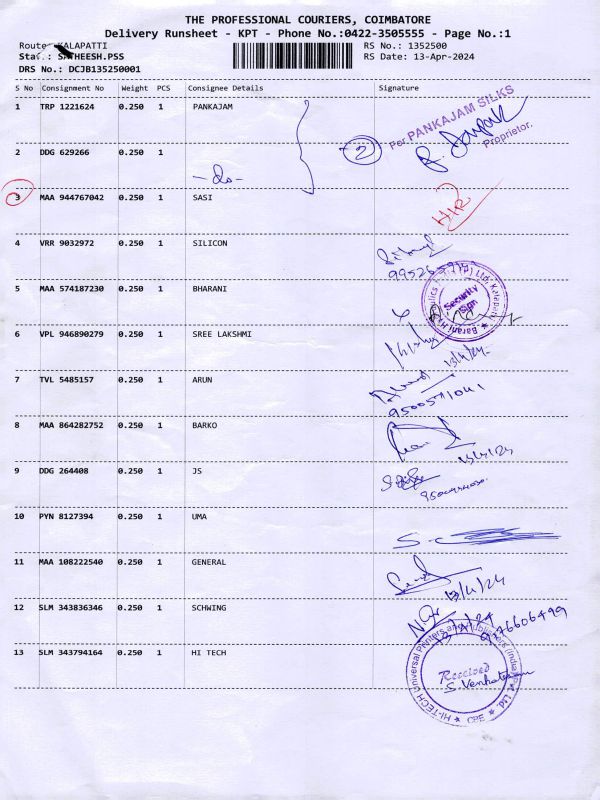 THE PROFESSIONAL COURIERS, COIMBATORE
Delivery Runsheet - KPT - Phone No.:0422-3505555 - Page No.:1
Route: KALAPATTI
RS No.: 1352500
Staff: SATHEESH.PSS
RS Date: 13-Apr-2024
DRS No.: DCJB135250001
S No Consignment No Weight PCS Consignee Details Signature
1 TRP 1221624 0.250 1 PANKAJAM
For PANKAJAM SILKS
Proprietor.
2 DDG 629266 0.250 1
2
- do -
3 MAA 944767042 0.250 1 SASI
4 VRR 9032972 0.250 1 SILICON
5 MAA 574187230 0.250 1 BHARANI
Security Sign
6 VPL 946890279 0.250 1 SREE LAKSHMI
13/4/24
7 TVL 5485157 0.250 1 ARUN
9500571041
8 MAA 864282752 0.250 1 BARKO
13/4/24
9 DDG 264408 0.250 1 JS
10 PYN 8127394 0.250 1 UMA
11 MAA 108222540 0.250 1 GENERAL
13/4/24
12 SLM 343836346 0.250 1 SCHWING
9176606499
13 SLM 343794164 0.250 1 HI TECH
HI-TECH Universal Printers and Publishers (India) Pvt Ltd.
Received
CBE